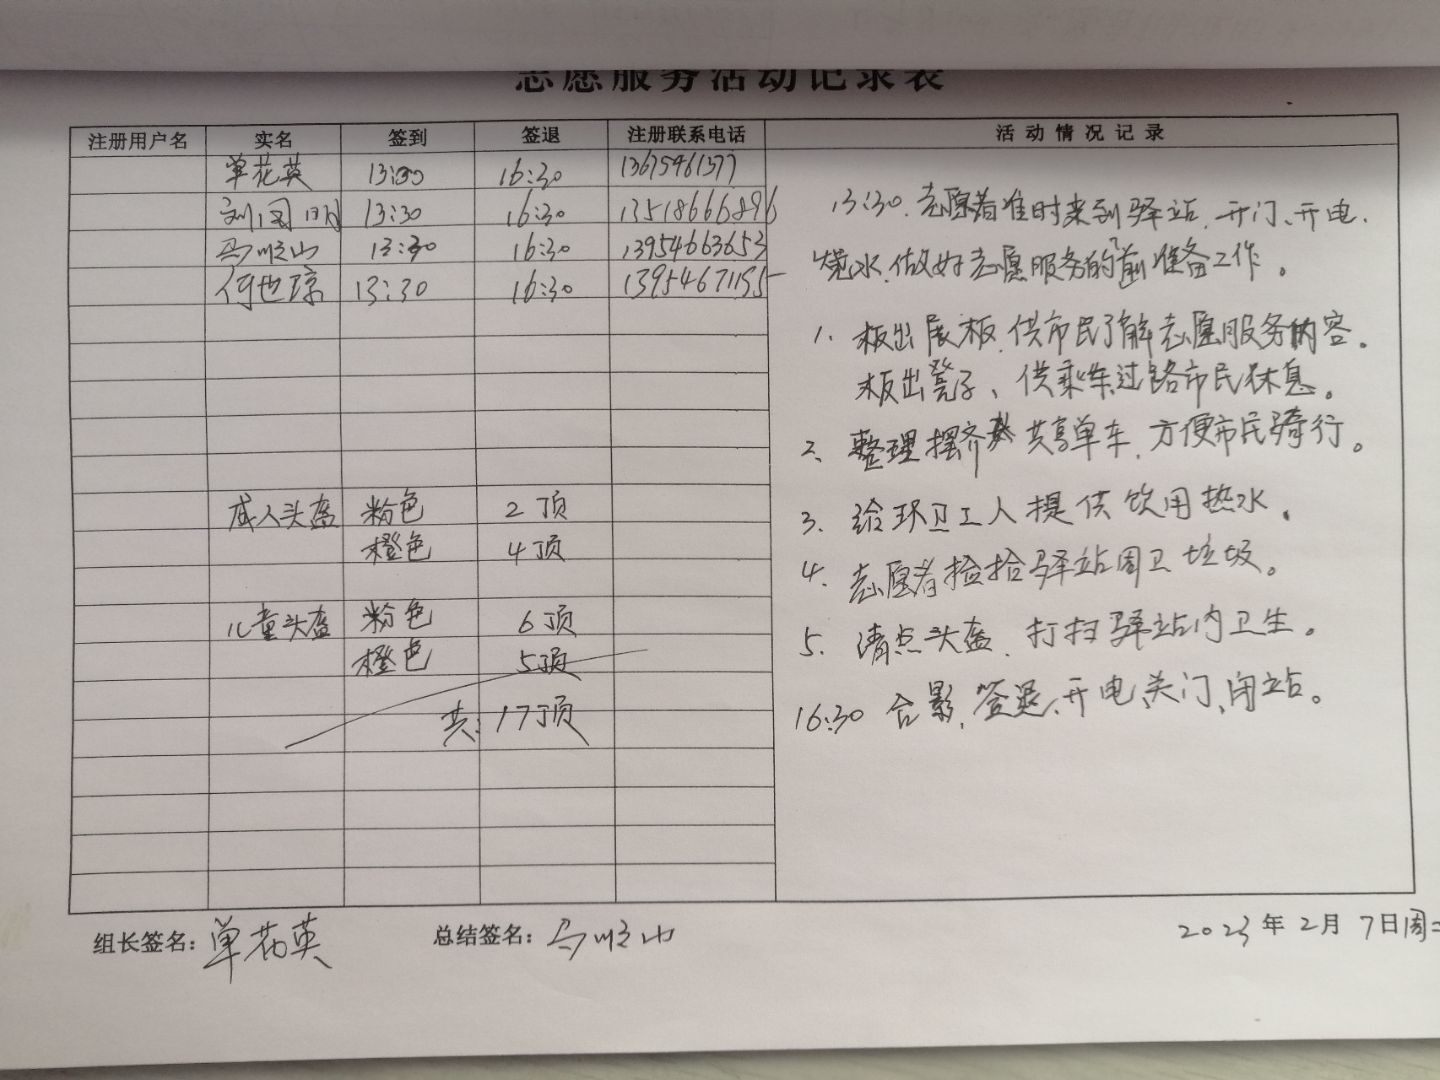 志愿服务活动记录表
注册用户名 实名 签到 签退 注册联系电话 活动情况记录
单花英 13:30 16:30 13675461577
刘国明 13:30 16:30 13518666896
马顺山 13:30 16:30 13954663653
何世琼 13:30 16:30 13954671195
成人头盔 粉色 2顶
橙色 4顶
儿童头盔 粉色 6顶
橙色 5顶
共: 17顶
13:30.志愿者准时来到驿站.开门、开电.
烧水.做好志愿服务的前准备工作。
1. 板出展板.供市民了解志愿服务内容。
板出凳子、供乘车过路市民休息。
2、整理摆齐共享单车.方便市民骑行。
3. 给环卫工人提供饮用热水.
4. 志愿者捡拾驿站周卫垃圾。
5. 清点头盔.打扫驿站内卫生。
16:30 合影.签退、开电、关门、闭站。
组长签名: 单花英 总结签名: 马顺山 2023年2月7日周二